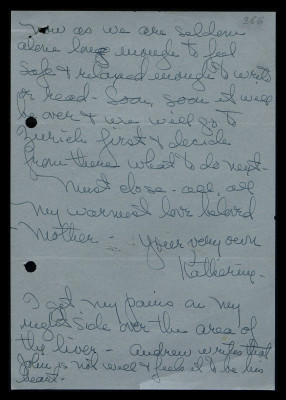 266
Now as we are seldom
alone long enough to feel
safe & relaxed enough to write
or read - Soon, soon it will
be over & we will go to
Zurich first & decide
from there what to do next -
Must close - all, all
my warmest love beloved
Mother - Your very own
Katherine -
I get my pains on my
right side over the area of
the liver - Andrew writes that
John is not well & feels it to be his
heart -